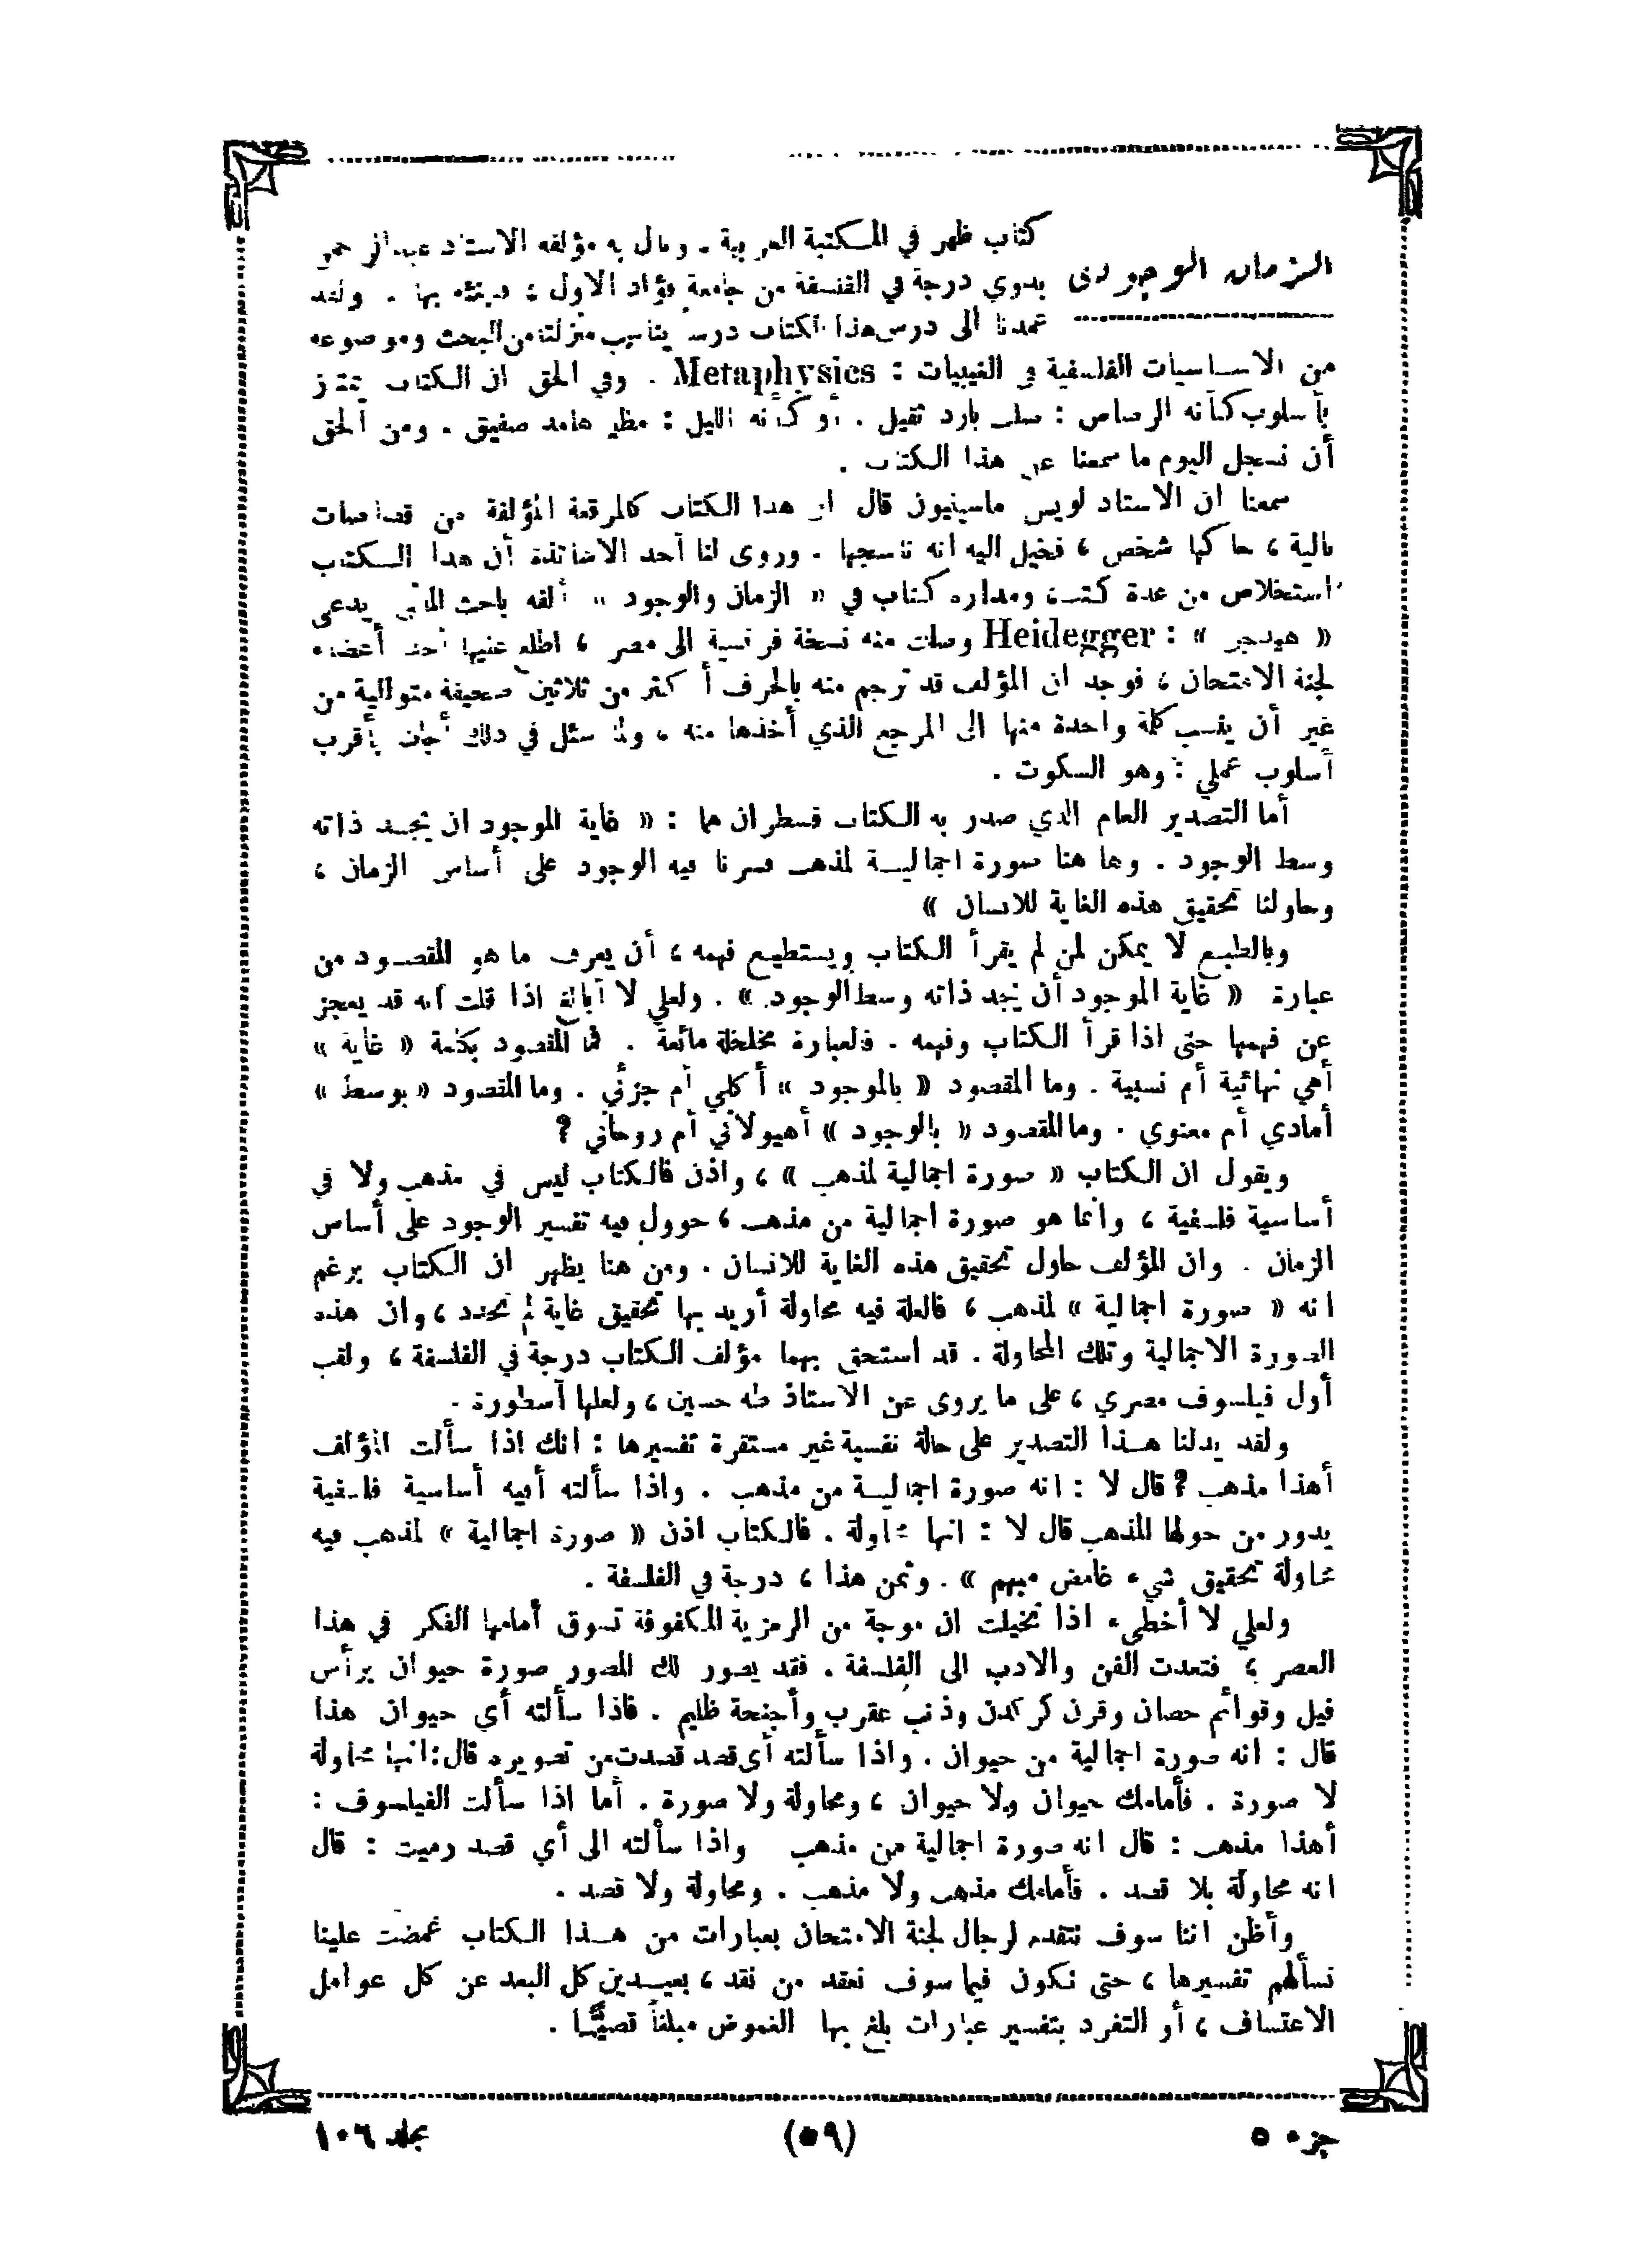 الزمان الوجودى
كتاب ظهر في المكتبة العربية . ونال به مؤلفه الاستاذ عبد الرحمن
بدوي درجة في الفلسفة من جامعة فؤاد الاول ؛ فنهنئه بها . ولقد
عمدنا الى درس هذا الكتاب درساً يناسب منزلته من البحث وموضوعه
من الاساسيات الفلسفية في الغيبيات : Metaphysics . وفي الحق ان الكتاب
بأسلوب كأنه الرصاص : صلب بارد ثقيل . أو كأنه الليل : مظلم هامد صفيق . ومن الحق
أن نسجل اليوم ما سمعنا عن هذا الكتاب .
سمعنا ان الاستاذ لويس ماسينيون قال ان هذا الكتاب كالمرقعة المؤلفة من قصاصات
بالية ، حاكها شخص ، فخيل اليه انه ناسجها . وروى لنا أحد الاساتذة أن هذا الكتاب
استخلاص من عدة كتب، ومداره كتاب في « الزمان والوجود » ألفه باحث الماني يدعى
« هيدجر » : Heidegger وصلت منه نسخة فرنسية الى مصر ، اطلع عليها أحد أعضاء
لجنة الامتحان ، فوجد ان المؤلف قد ترجم منه بالحرف أكثر من ثلاثين صحيفة متوالية من
غير أن ينسب كلمة واحدة منها الى المرجع الذي أخذها منه ، ولما سئل في ذلك أجاب بأقرب
أسلوب عملي : وهو السكوت .
أما التصدير العام الذي صدر به الكتاب فسطران هما : « غاية الموجود ان يجد ذاته
وسط الوجود . وها هنا صورة اجمالية لمذهب فسرنا فيه الوجود على أساس الزمان ،
وحاولنا تحقيق هذه الغاية للانسان »
وبالطبع لا يمكن لمن لم يقرأ الكتاب ويستطيع فهمه ، أن يعرف ما هو المقصود من
عبارة « غاية الموجود أن يجد ذاته وسط الوجود. » . ولعلي لا أبالغ اذا قلت انه قد يعجز
عن فهمها حتى اذا قرأ الكتاب وفهمه . فالعبارة مخلخلة مائعة . فما المقصود بكلمة « غاية »
أهي نهائية أم نسبية . وما المقصود « بالموجود » أكلي أم جزئي . وما المقصود « بوسط »
أمادي أم معنوي . وما المقصود « بالوجود » أهيولاني أم روحاني ؟
ويقول ان الكتاب « صورة اجمالية لمذهب » ، واذن فالكتاب ليس في مذهب ولا في
أساسية فلسفية ، وانما هو صورة اجمالية من مذهب ، حوول فيه تفسير الوجود على أساس
الزمان . وان المؤلف حاول تحقيق هذه الغاية للانسان . ومن هنا يظهر ان الكتاب برغم
انه « صورة اجمالية » لمذهب ، فالعلة فيه محاولة أريد بها تحقيق غاية لم تحدد ، وان هذه
الصورة الاجمالية وتلك المحاولة . قد استحق بهما مؤلف الكتاب درجة في الفلسفة ، ولقب
أول فيلسوف مصري ، على ما يروى عن الاستاذ طه حسين ، ولعلها أسطورة .
ولقد يدلنا هذا التصدير على حالة نفسية غير مستقرة تفسيرها : انك اذا سألت المؤلف
أهذا مذهب ؟ قال لا : انه صورة اجمالية من مذهب . واذا سألته أفيه أساسية فلسفية
يدور من حولها المذهب قال لا : انها محاولة . فالكتاب اذن « صورة اجمالية » لمذهب فيه
محاولة تحقيق شيء غامض مبهم » . وثمن هذا ، درجة في الفلسفة .
ولعلي لا أخطىء اذا تخيلت ان موجة من الرمزية المكفوفة تسوق أمامها الفكر في هذا
العصر ؛ فتعدت الفن والادب الى الفلسفة . فقد يصور لك المصور صورة حيوان برأس
فيل وقوائم حصان وقرن كركدن وذنب عقرب وأجنحة ظليم . فاذا سألته أي حيوان هذا
قال : انه صورة اجمالية من حيوان . واذا سألته أي قصد قصدت من تصويره قال : انها محاولة
لا صورة . فأمامك حيوان ولا حيوان ، ومحاولة ولا صورة . أما اذا سألت الفيلسوف :
أهذا مذهب : قال انه صورة اجمالية من مذهب واذا سألته الى أي قصد رميت : قال
انه محاولة بلا قصد . فأمامك مذهب ولا مذهب . ومحاولة ولا قصد .
وأظن اننا سوف نتقدم لرجال لجنة الامتحان بعبارات من هذا الكتاب غمضت علينا
نسألهم تفسيرها ، حتى نكون فيما سوف نعقد من نقد ، بعيدين كل البعد عن كل عوامل
الاعتساف ، أو التفرد بتفسير عبارات بلغ بها الغموض مبلغاً قصيًّا .
جزء ٥
(٥٩)
مجلد ١٠٦